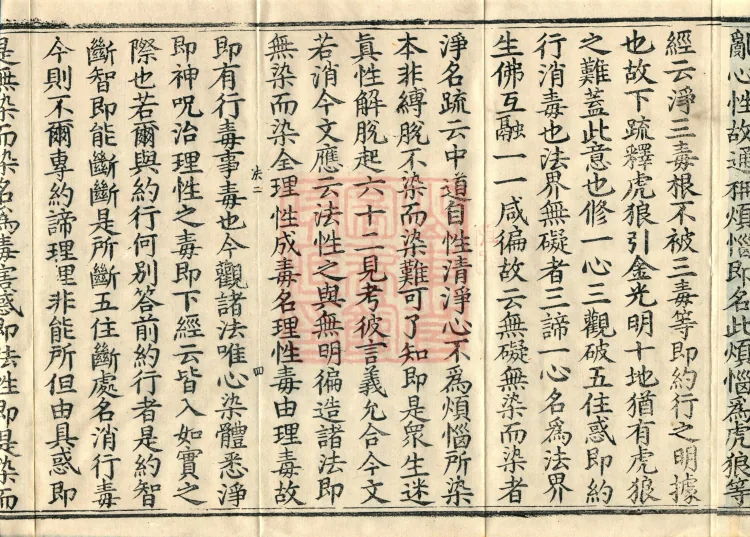 亂心性故通稱煩惱即名此煩惱爲虎狼等
經云淨三毒根不被三毒等即約行之明據
也故下疏釋虎狼引金光明十地猶有虎狼
之難蓋此意也修一心三觀破五住惑即約
行消毒也法界無礙者三諦一心名爲法界
生佛互融一一咸徧故云無礙無染而染者
淨名疏云中道自性清淨心不爲煩惱所染
本非縛脫不染而染難可了知即是衆生迷
眞性解脫起六十二見考彼言義允合今文
若消今文應云法性之與無明徧造諸法即
無染而染全理性成毒名理性毒由理毒故
法二
四
即有行毒事毒也今觀諸法唯心染體悉淨
即神呪治理性之毒即下經云皆入如實之
際也若爾與約行何別答前約行者是約智
斷智即能斷斷是所斷五住斷處名消行毒
今則不爾專約諦理理非能所但由具惑即
是無染而染名爲毒害惑即法性即是染而